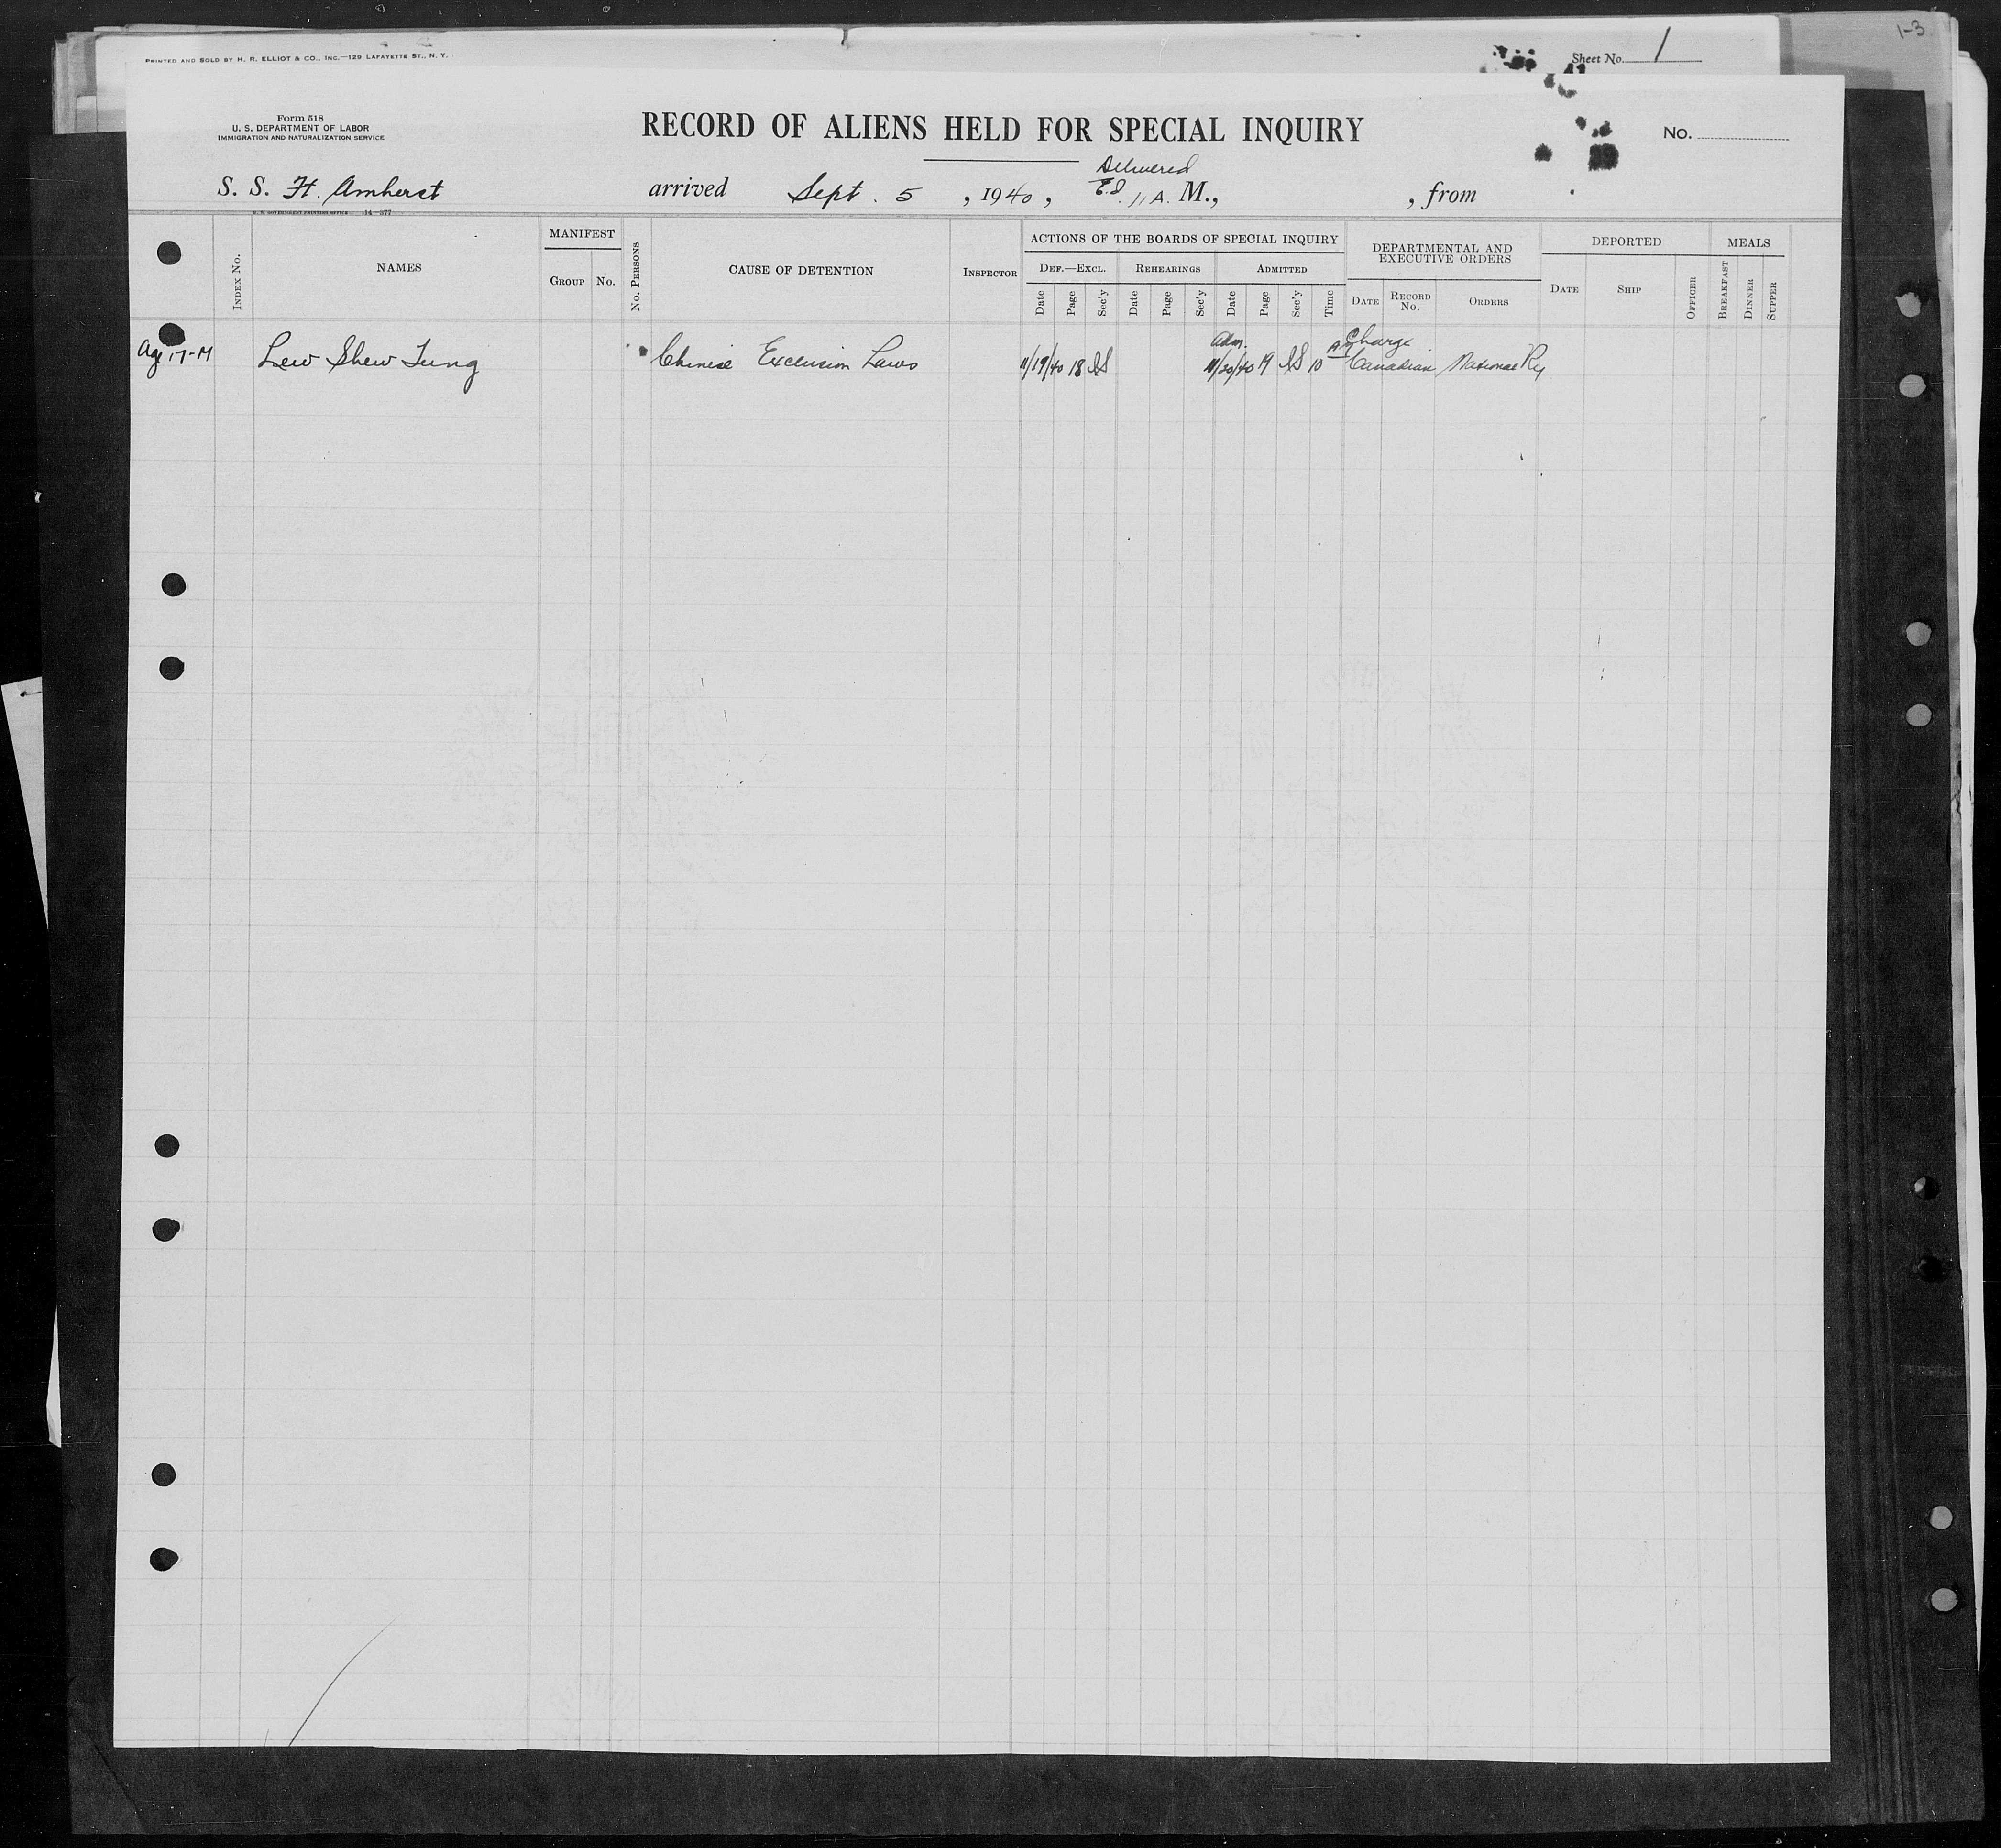 1-3
PRINTED AND SOLD BY H. R. ELLIOT & CO., INC.—129 LAFAYETTE ST., N. Y.
Sheet No. 1
Form 518
U. S. DEPARTMENT OF LABOR
IMMIGRATION AND NATURALIZATION SERVICE
RECORD OF ALIENS HELD FOR SPECIAL INQUIRY
No.
Delivered
S. S. Ft. Amherst arrived Sept. 5, 1940, E.I. 11 A. M., , from
U. S. GOVERNMENT PRINTING OFFICE 14—577
INDEX No.
NAMES
MANIFEST
GROUP No.
No. PERSONS
CAUSE OF DETENTION
INSPECTOR
ACTIONS OF THE BOARDS OF SPECIAL INQUIRY
DEF.—EXCL. REHEARINGS ADMITTED
Date Page Sec'y Date Page Sec'y Date Page Sec'y Time
DEPARTMENTAL AND
EXECUTIVE ORDERS
DATE RECORD No. ORDERS
DEPORTED
DATE SHIP OFFICER
MEALS
BREAKFAST DINNER SUPPER
Adm. AM Charge
Age 17-M Lew Shew Tung Chinese Exclusion Laws 11/19/40 18 IS 11/20/40 19 IS 10 Canadian National Ry